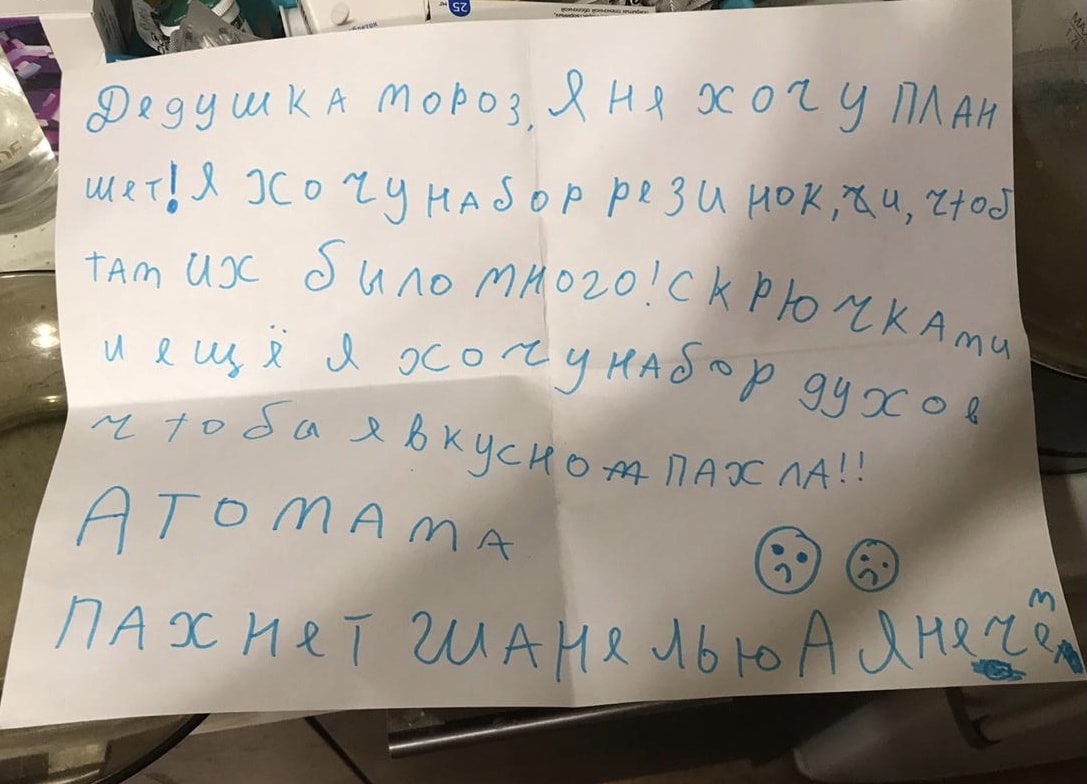 25
Дедушка мороз, я не хочу план
шет! Я хочу набор резинок, чи, чтоб
там их было много! с крючками
и ещё я хочу набор духов
чтобы я вкусно пахла!!
А то мама
пахнет шанелью а я не чем